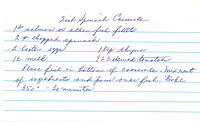 Fish Spinach Casserole
1 lb salmon or other fish fillets
2 # chopped spinach
2 beaten eggs 1 tsp thyme
1 c milk 1 - 2 diced tomatoes
Place fish in bottom of casserole. Mix rest
of ingredients and pour over fish. Bake
350° - 20 minutes